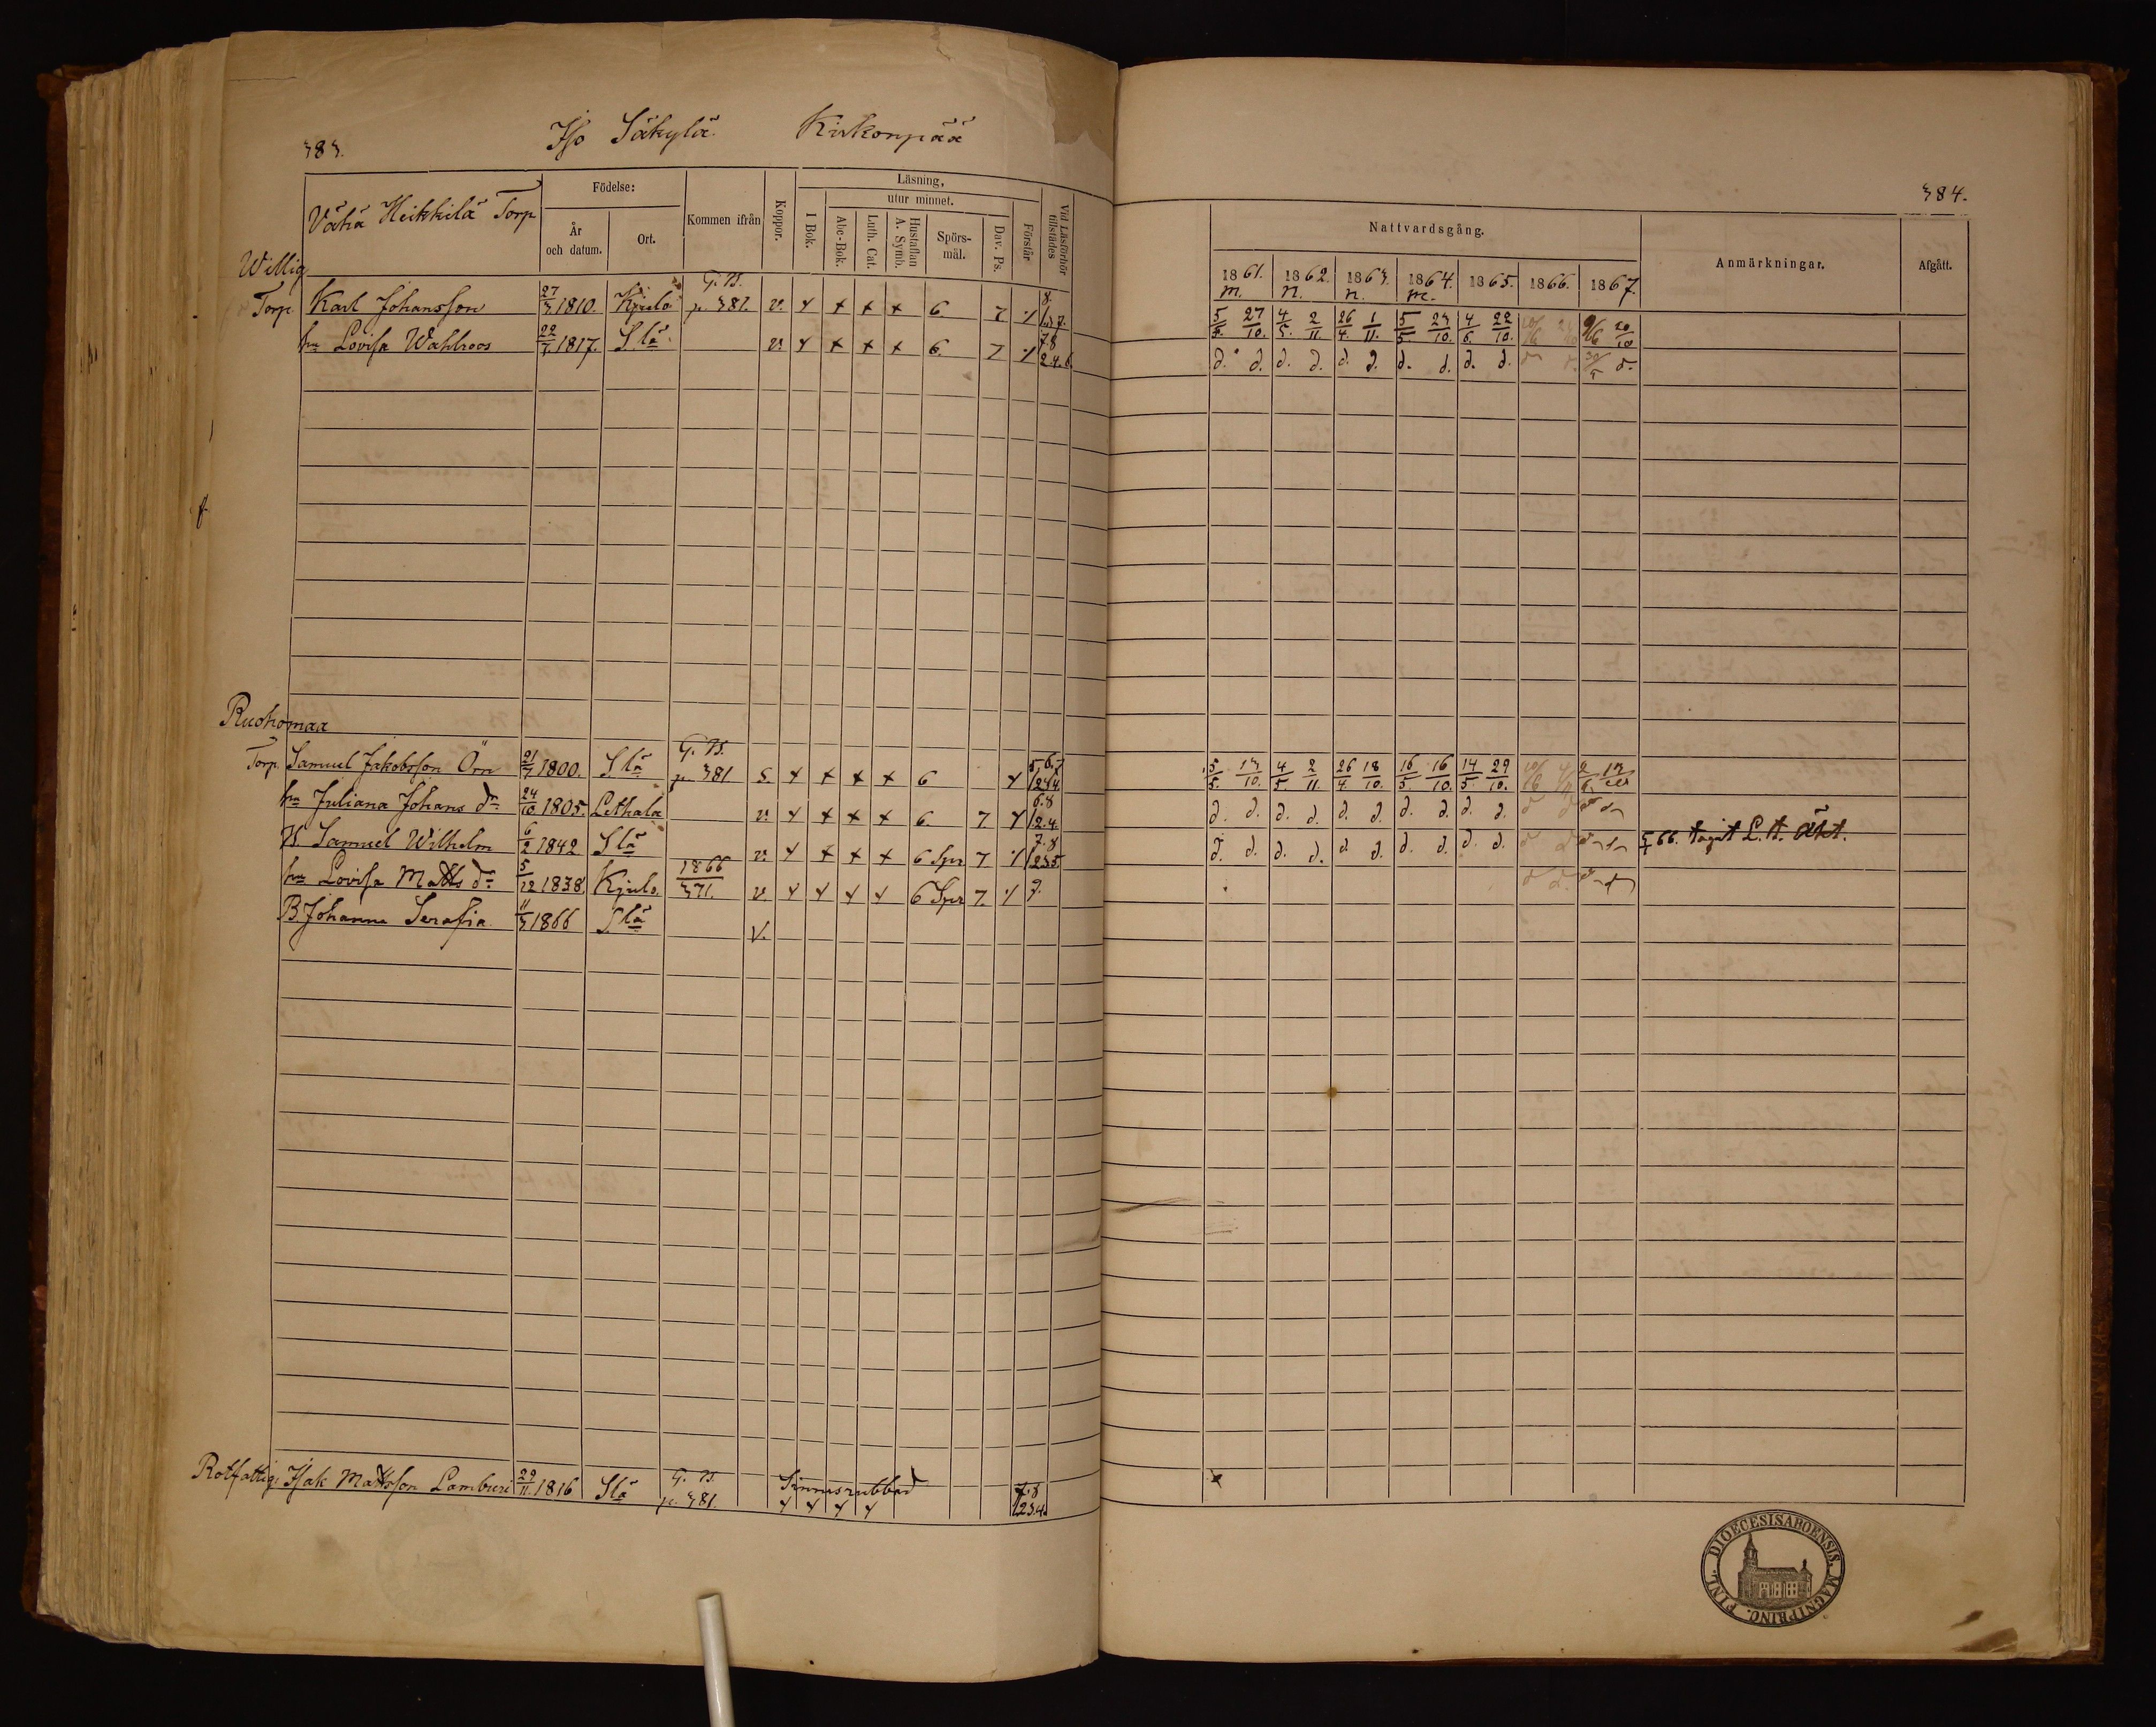 383.
Iso Säkylä. Kirkonpää
Wähä Heikkilä Torp
Födelse:
År och datum.
Ort.
Kommen ifrån
Koppor.
Läsning,
I Bok.
utur minnet.
Abc-Bok.
Luth. Cat.
Hustaflan A. Symb.
Spörsmål.
Dav. Ps.
Förstår
Vid Läsförhör tillstädes
Willig
Torp. Karl Johansson 27/3 1810. Kjulo G. B. p. 381. v. 6. 7
hu Lovisa Wahlroos 22/7 1817. Slä v. 6. 7 7.8 2.4.6.
Ruohomaa
Torp. Samuel Jakobsson Örn 21/7 1800. Slä G. B. p. 381 s 6 5,6,7 1234
hu Juliana Johans dr 24/10 1805. Lethala v. 6. 7. 6.8 12.4.
B. Samuel Wilhelm 6/2 1842 Slä v. 6 Spr 7. 7.8 1235
hu Lovisa Matts dr 5/12 1838. Kjulo. 1866 371. v. 6 Spr 7. 7.
B Johanna Serafia 11/3 1866 Slä v.
Rotfattig Isak Mattsson Lamburi 29/11 1816 Slä G. B. p. 381. Sinnesrubbad 7.8 1234
384.
Nattvardsgång.
Anmärkningar.
Afgått.
1861. 1862. 1863. 1864. 1865. 1866. 1867.
m. n. n. m.
5/5. 27/10. 4/5. 2/11. 26/4. 1/11. 5/5. 23/10. 4/6. 22/10. 9/6 20/10
d. d. d. d. d. d. d. d. d. d. 30/5 d.
5/5. 13/10. 4/5. 2/11. 26/4. 18/10. 16/5 16/10. 14/5. 29/10.
d. d. d. d. d. d. d. d. d. d.
d. d. d. d. d. d. d. d. d. d. 5/1 66. tagit L. B. äkt.
DIOECESIS ABOENSIS. MAGNI PRINC. FINL.